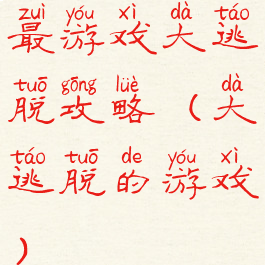 zuì yóu xì dà táo
最游戏大逃
tuō gōng lüè dà
脱攻略（大
táo tuō de yóu xì
逃脱的游戏
）